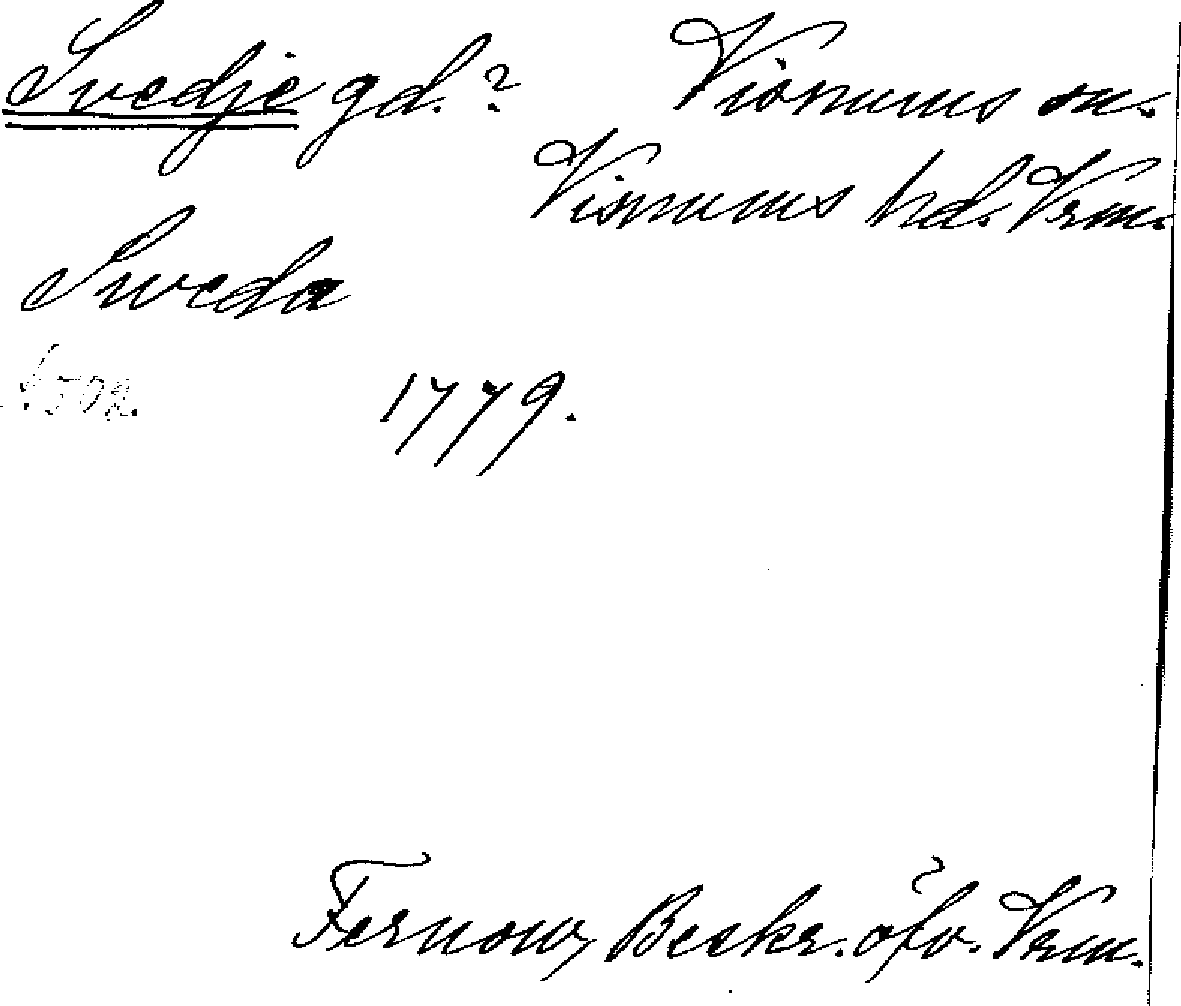 Svedje gd.? Visnums sn.
Visnums hd. Vrm.
Sveda
s. 502.
1779.
Fernow, Beskr. öfv. Vrm.